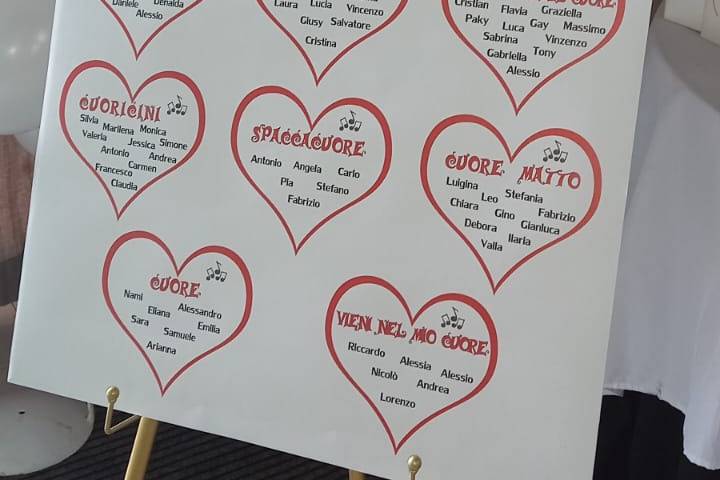 Daniele
Alessio
Laura Lucia Vincenzo
Giusy Salvatore
Cristina
CUORE
Cristian Flavia Graziella
Paky Luca Gay Massimo
Sabrina Vinzenzo
Gabriella Tony
Alessio
CUORICINI
Silvia Marilena Monica
Valeria Jessica Simone
Antonio Andrea
Carmen
Francesco
Claudia
SPACCACUORE
Antonio Angela Carlo
Pia Stefano
Fabrizio
CUORE MATTO
Luigina Leo Stefania
Chiara Gino Fabrizio
Debora Gianluca
Ilaria
Valla
CUORE
Nami Alessandro
Eliana
Sara Emilia
Samuele
Arianna
VIENI NEL MIO CUORE
Riccardo Alessia Alessio
Nicolò Andrea
Lorenzo